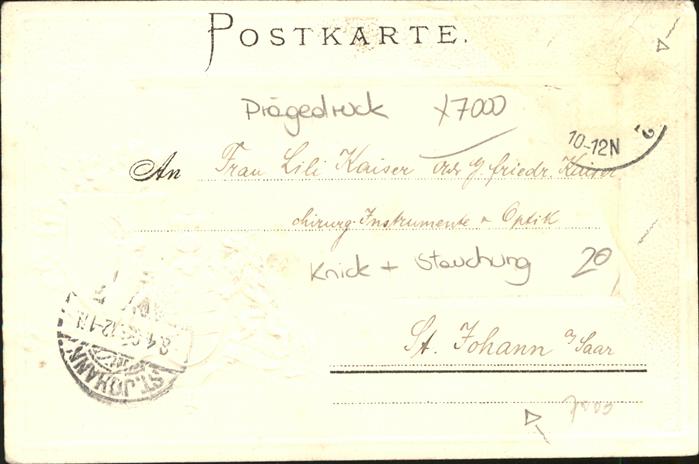 POSTKARTE.
Prägedruck X7000
10-12N
An Frau Lili Kaiser Friedr. Kaiser
chirurg. Instrumente & Optik
Knick + Stauchung 20
St. Johann a/Saar
ST. JOHANN